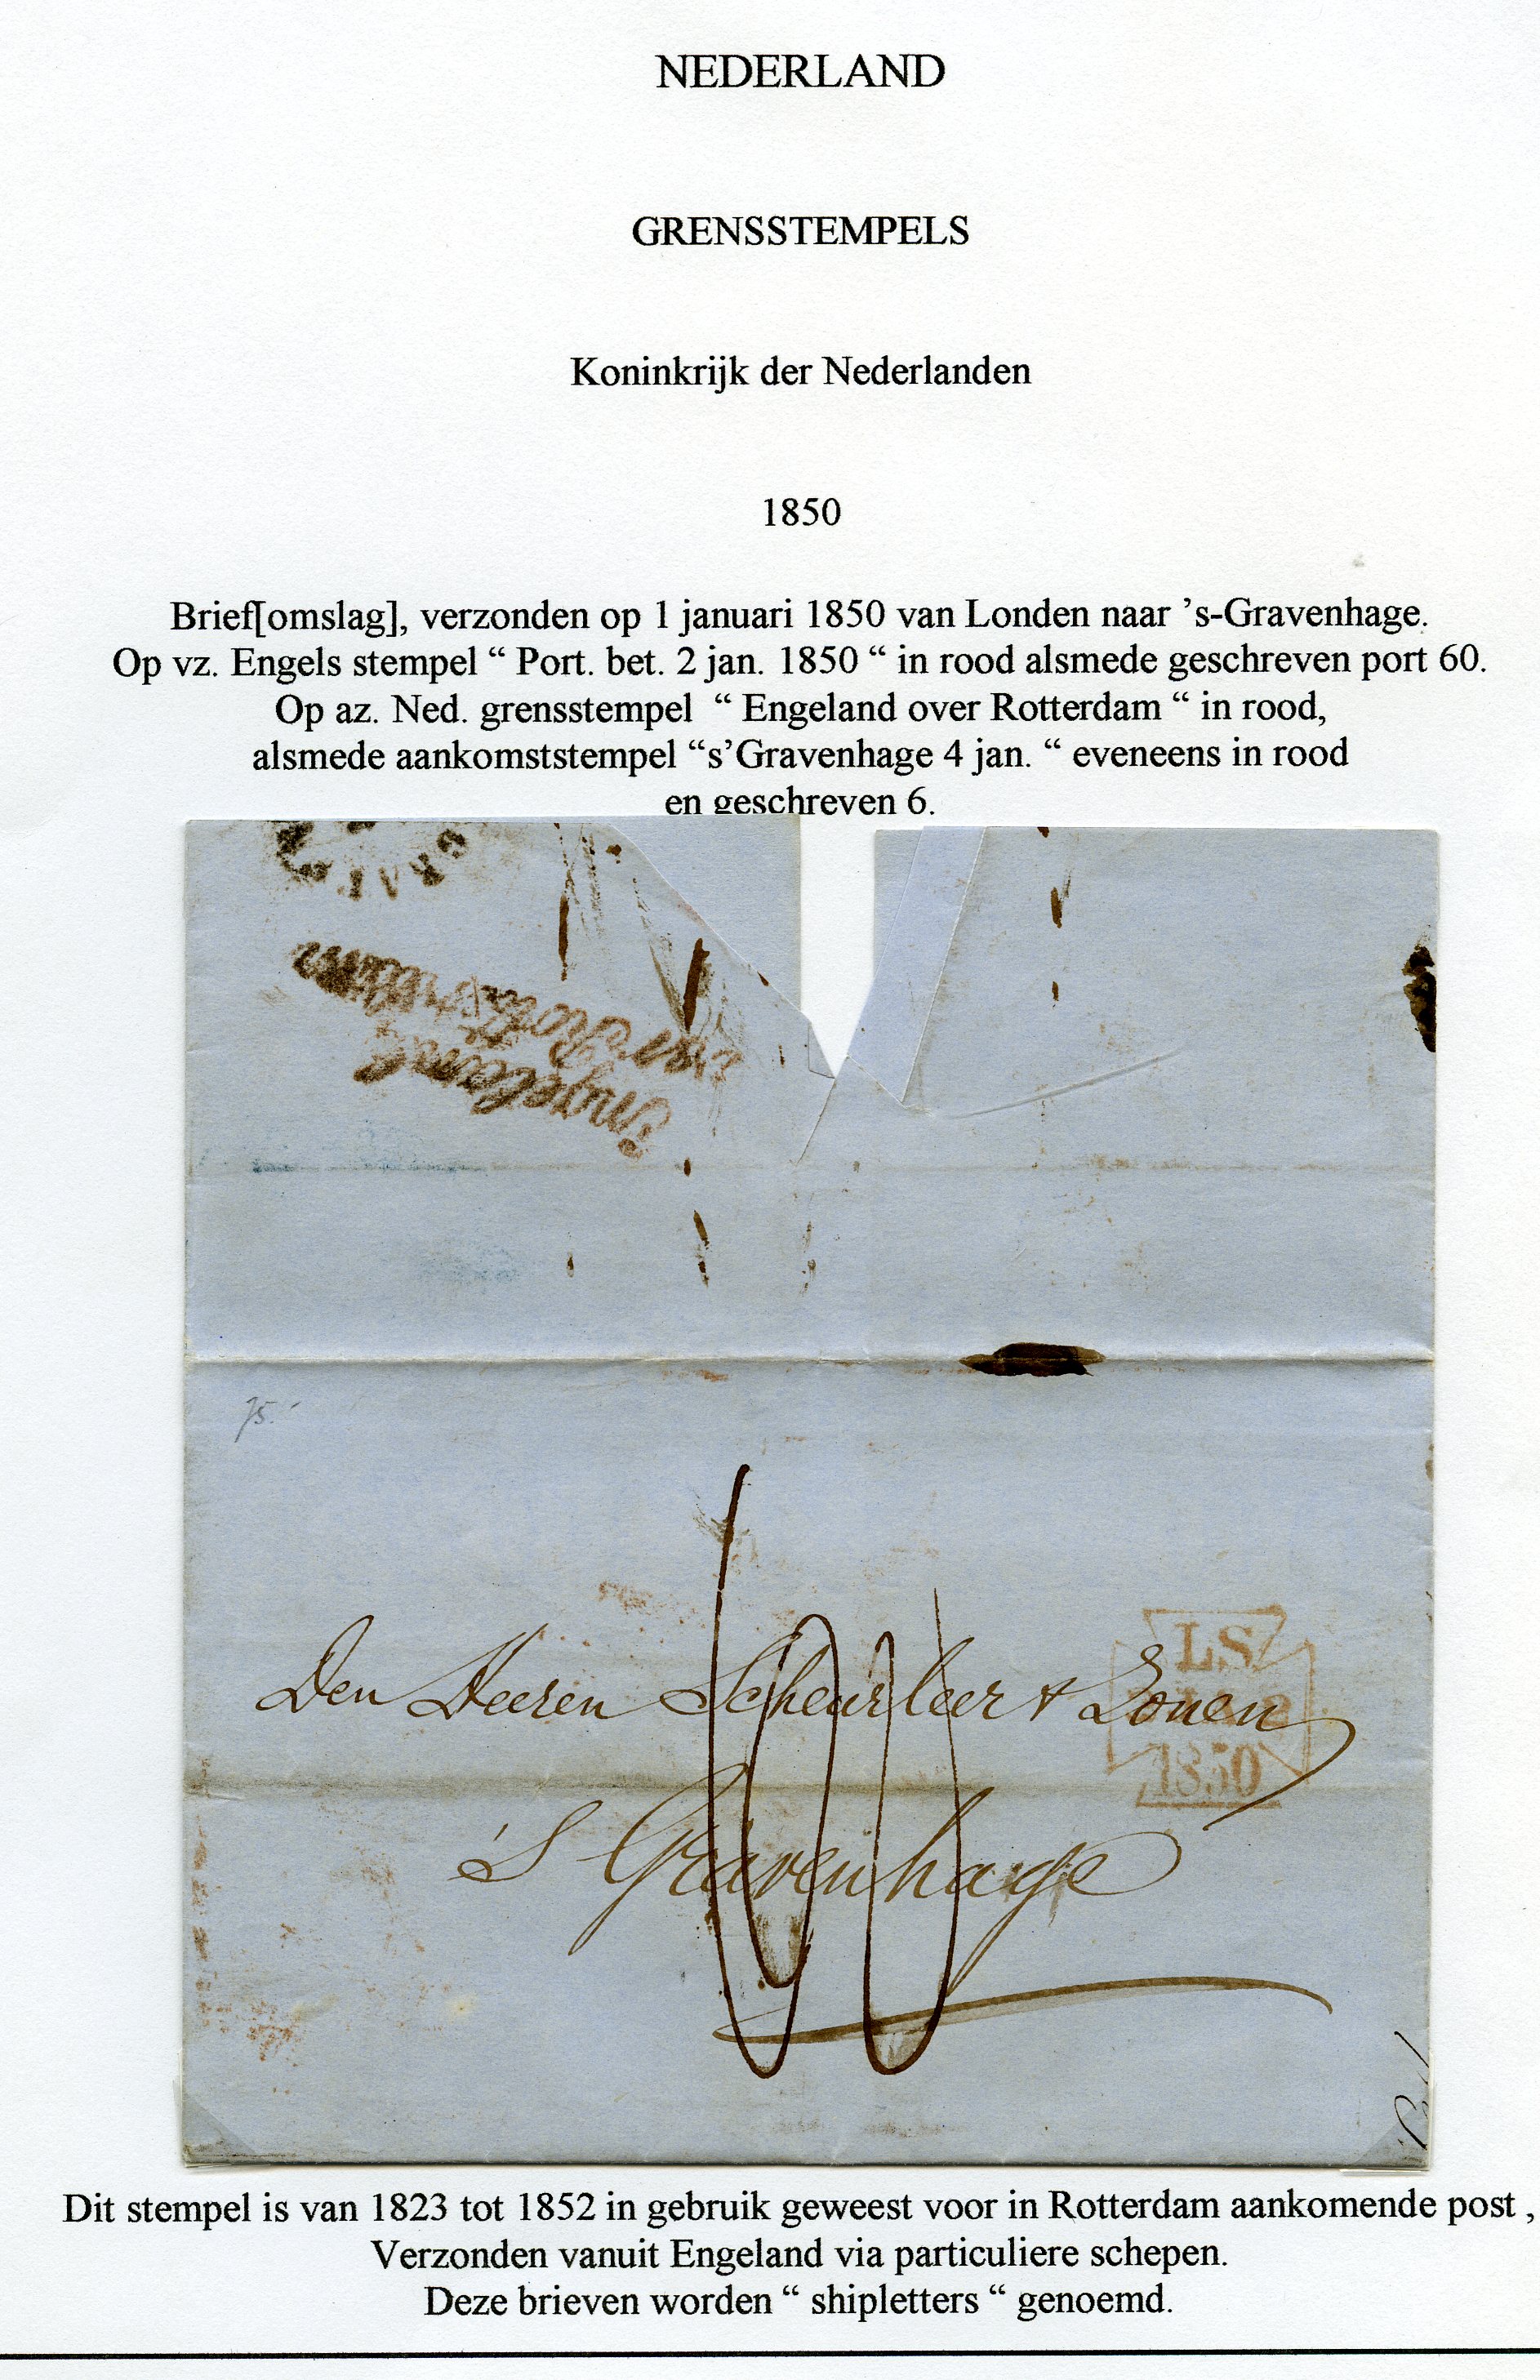 NEDERLAND
GRENSSTEMPELS
Koninkrijk der Nederlanden
1850
Brief[omslag], verzonden op 1 januari 1850 van Londen naar ’s-Gravenhage.
Op vz. Engels stempel “ Port. bet. 2 jan. 1850 “ in rood alsmede geschreven port 60.
Op az. Ned. grensstempel “ Engeland over Rotterdam “ in rood,
alsmede aankomststempel “s’Gravenhage 4 jan. “ eveneens in rood
en geschreven 6.
GRAV
over Rotterdam
Engeland
75.-
60
LS
1850
Den Heeren Scheurleer & Zonen
'S Gravenhage
Dit stempel is van 1823 tot 1852 in gebruik geweest voor in Rotterdam aankomende post ,
Verzonden vanuit Engeland via particuliere schepen.
Deze brieven worden “ shipletters “ genoemd.